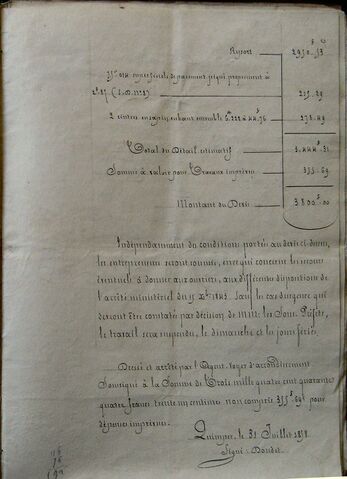 F C
Report 2950.53
2 cintres
Total du Détail estimatif 3.444.31
Somme à valoir pour Travaux imprévus 355.69
Montant du Devis 3800.00
Indépendamment des conditions portées au devis ci-dessus,
les entrepreneurs seront soumis, en ce qui concerne les secours
éventuels à donner aux ouvriers, aux différentes dispositions de
l'arrêté ministériel du 15 Xbre 1848. Sauf les cas d'urgence qui
devront être constatés par décision de MM. les Sous-Préfets,
le travail sera suspendu, le dimanche et les jours fériés.
Dressé et arrêté par l'Agent-Voyer d'arrondissement
Soussigné à la Somme de Trois mille quatre cent quarante
quatre francs trente un centimes non compris 355f,69c pour
dépenses imprévues.
Quimper, le 31 Juillet
Signé: